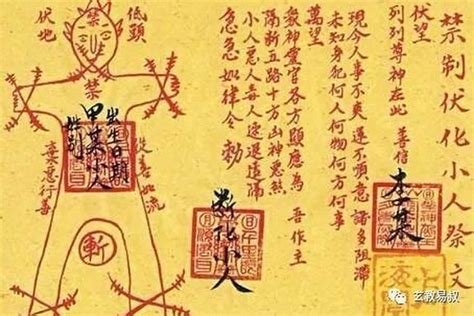 禁制伏化小人祭文
伏望
列列尊神在此 善信 李某
現今人事不爽運不順意諸多阻滯
未知身犯何人何物何方何事
萬望 吾作主
眾神靈官各方顯應為
隔斷五路十方凶神惡煞
小人惡人毒人速退遠隔
急急如律令 勅
斷化小人
低頭
伏地
禁
禁
出生日期
甲某小人
性别
從善如流
棄惡行善
斬
玄教易叔